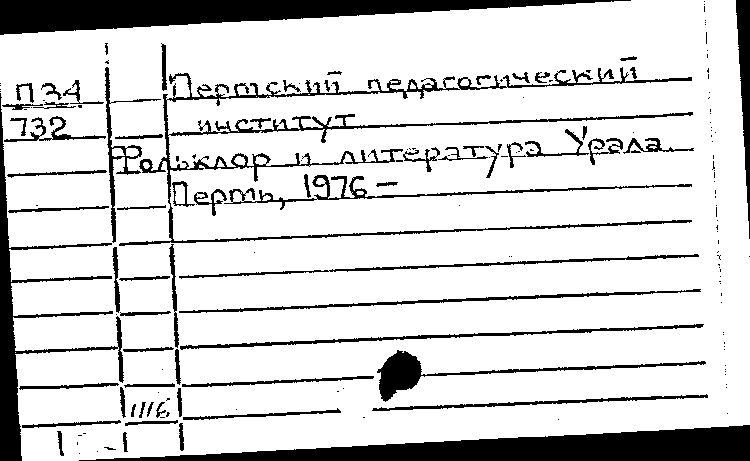 П34 Пермский педагогический
732 институт
Фольклор и литература Урала.
Пермь, 1976 —
1116